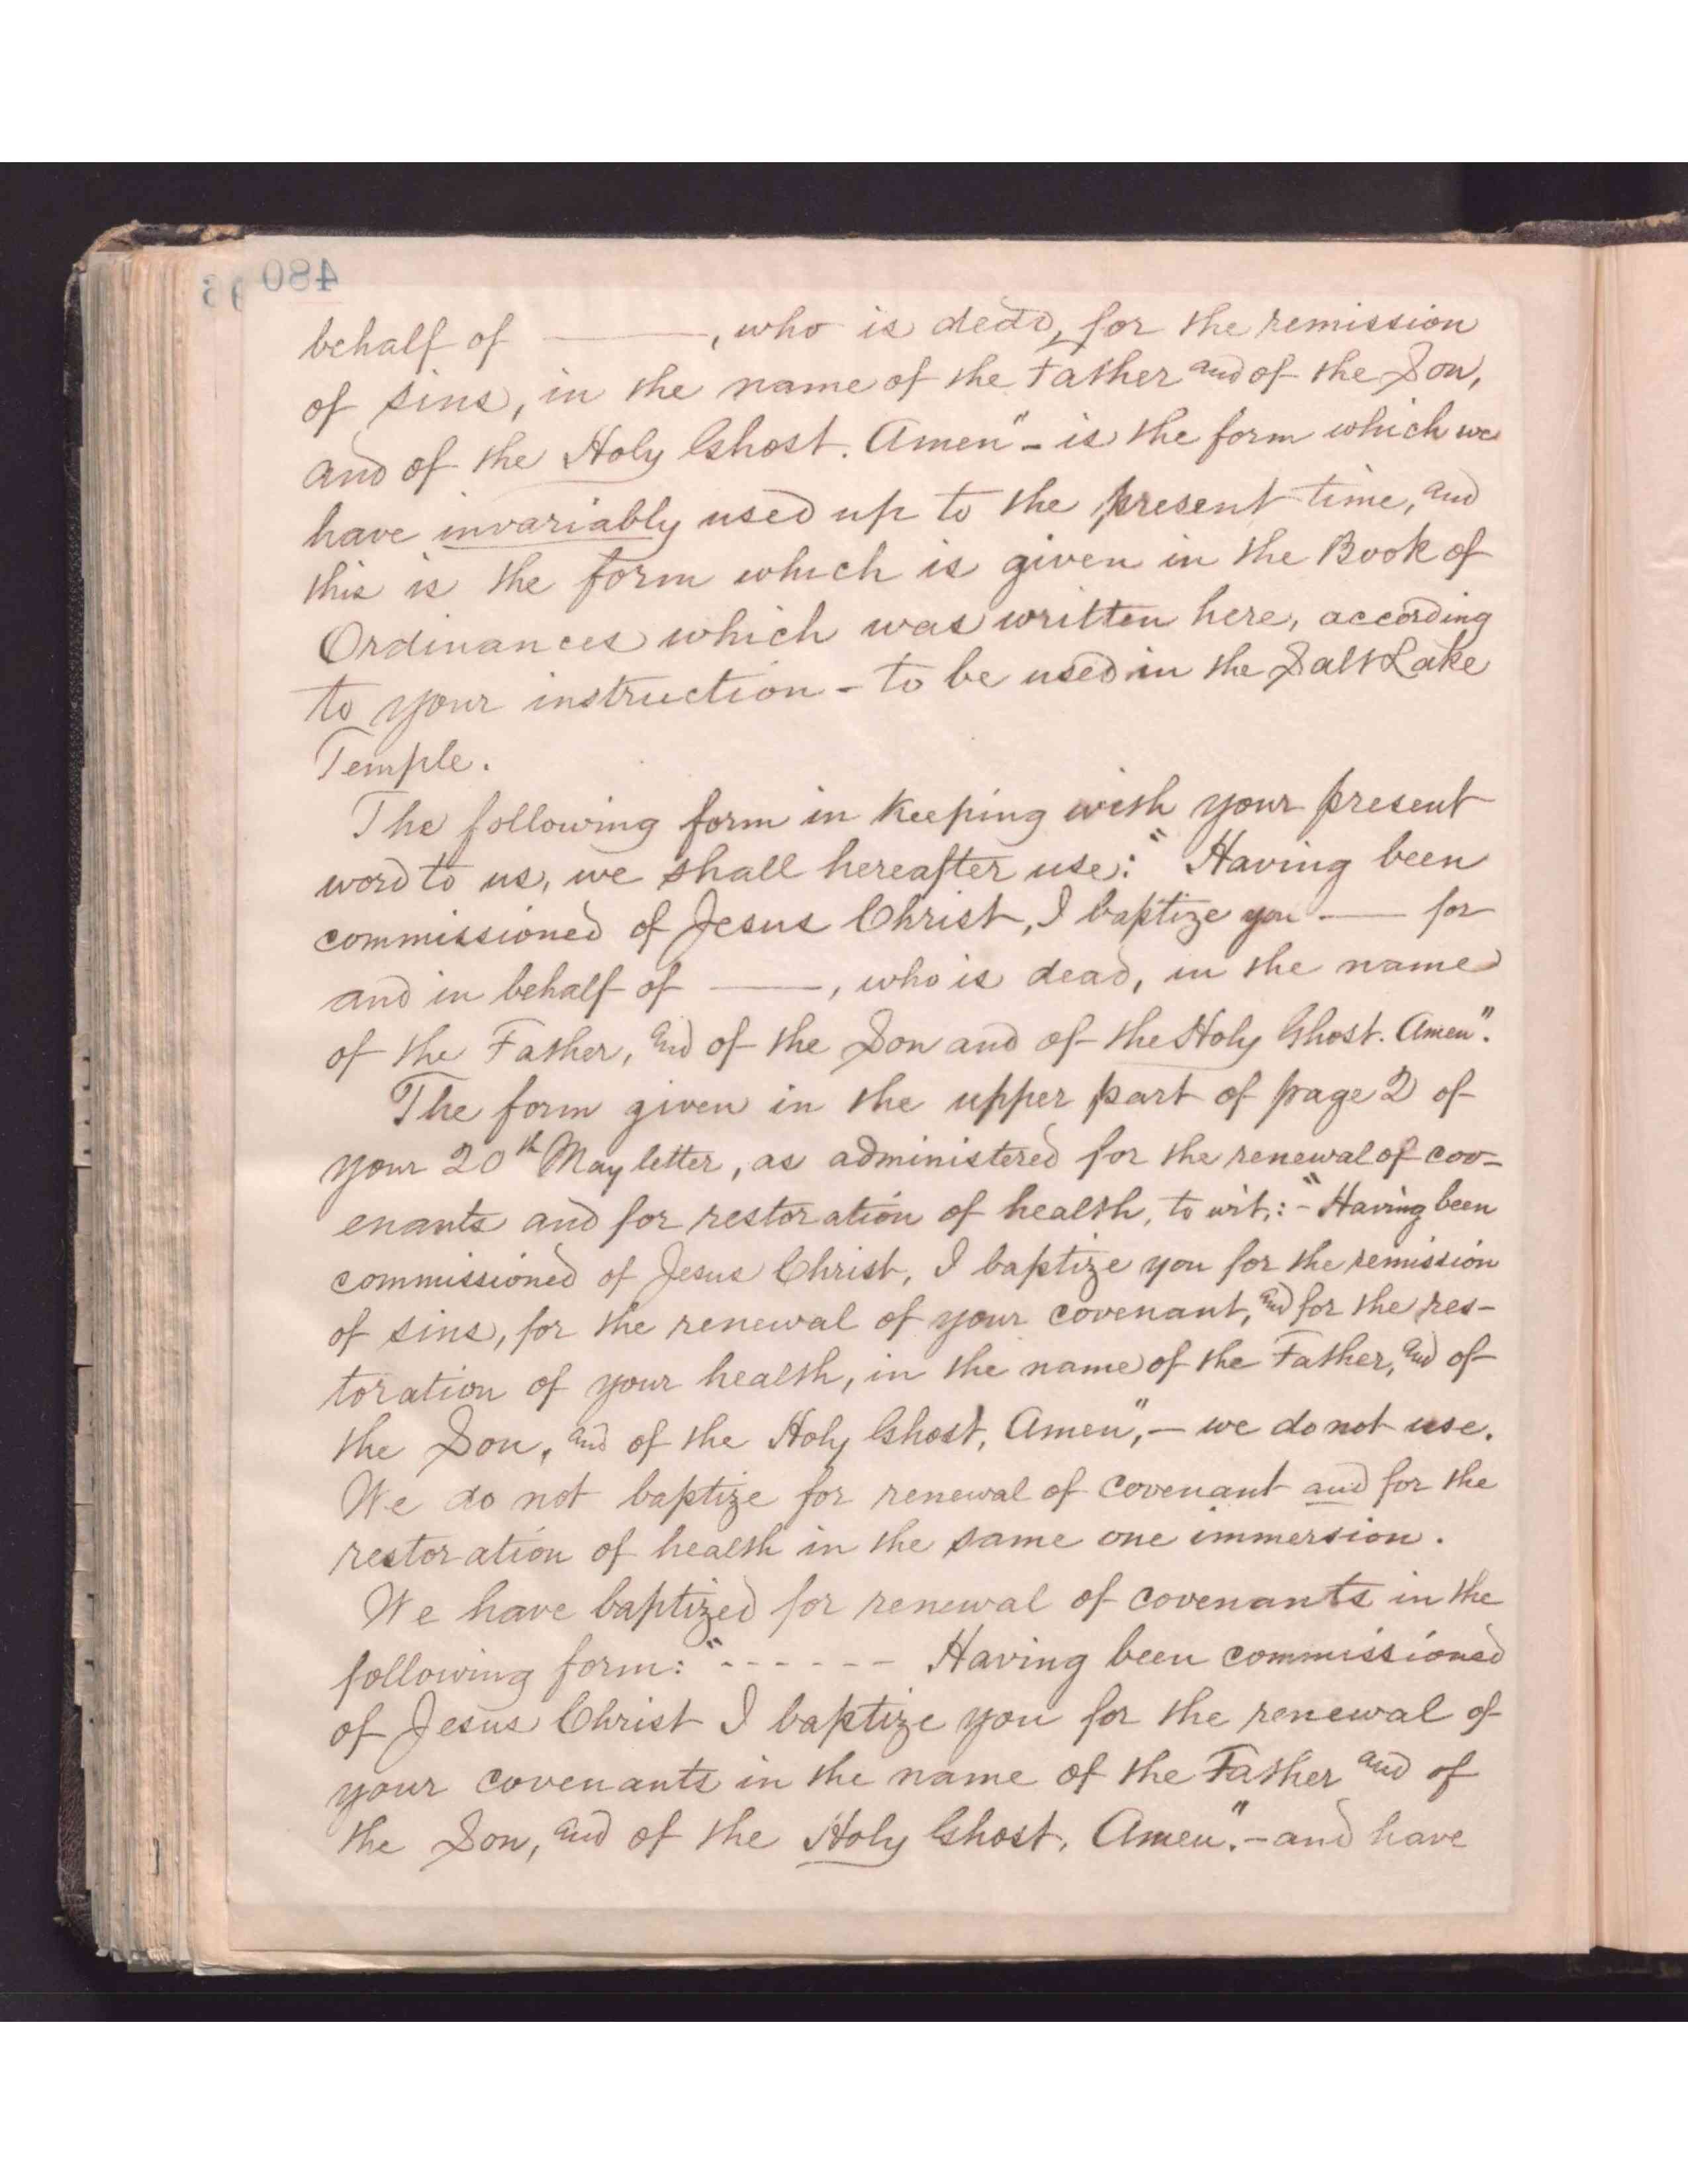 480
behalf of ———, who is dead, for the remission
of sins, in the name of the Father and of the Son,
and of the Holy Ghost. Amen" - is the form which we
have invariably used up to the present time, and
this is the form which is given in the Book of
Ordinances which was written here, according
to your instruction - to be used in the Salt Lake
Temple.
The following form in keeping with your present
word to us, we shall hereafter use: "Having been
commissioned of Jesus Christ, I baptize you —— for
and in behalf of ———, who is dead, in the name
of the Father, and of the Son and of the Holy Ghost. Amen".
The form given in the upper part of page 2 of
your 20th May letter, as administered for the renewal of cov-
enants and for restoration of health, to wit,: - "Having been
commissioned of Jesus Christ, I baptize you for the remission
of sins, for the renewal of your covenant, and for the res-
toration of your health, in the name of the Father, and of
the Son, and of the Holy Ghost, Amen", — we do not use.
We do not baptize for renewal of covenant and for the
restoration of health in the same one immersion.
We have baptized for renewal of covenants in the
following form: "- - - - - - Having been commissioned
of Jesus Christ I baptize you for the renewal of
your covenants in the name of the Father and of
the Son, and of the Holy Ghost, Amen". - and have